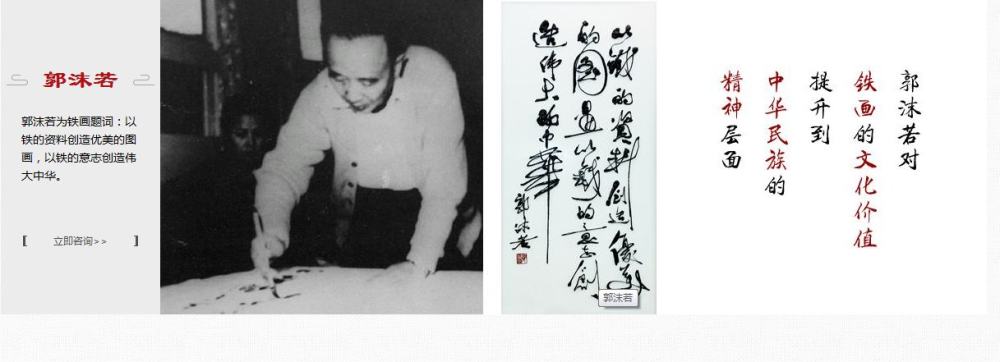 郭沫若
郭沫若为铁画题词：以
铁的资料创造优美的图
画，以铁的意志创造伟
大中华。
[ 立即咨询>> ]
以鐵的資料創造優美
的圖畫以鐵的意志創
造伟大的中華
郭沫若
郭沫若
郭沫若对
铁画的文化价值
提升到
中华民族的
精神层面